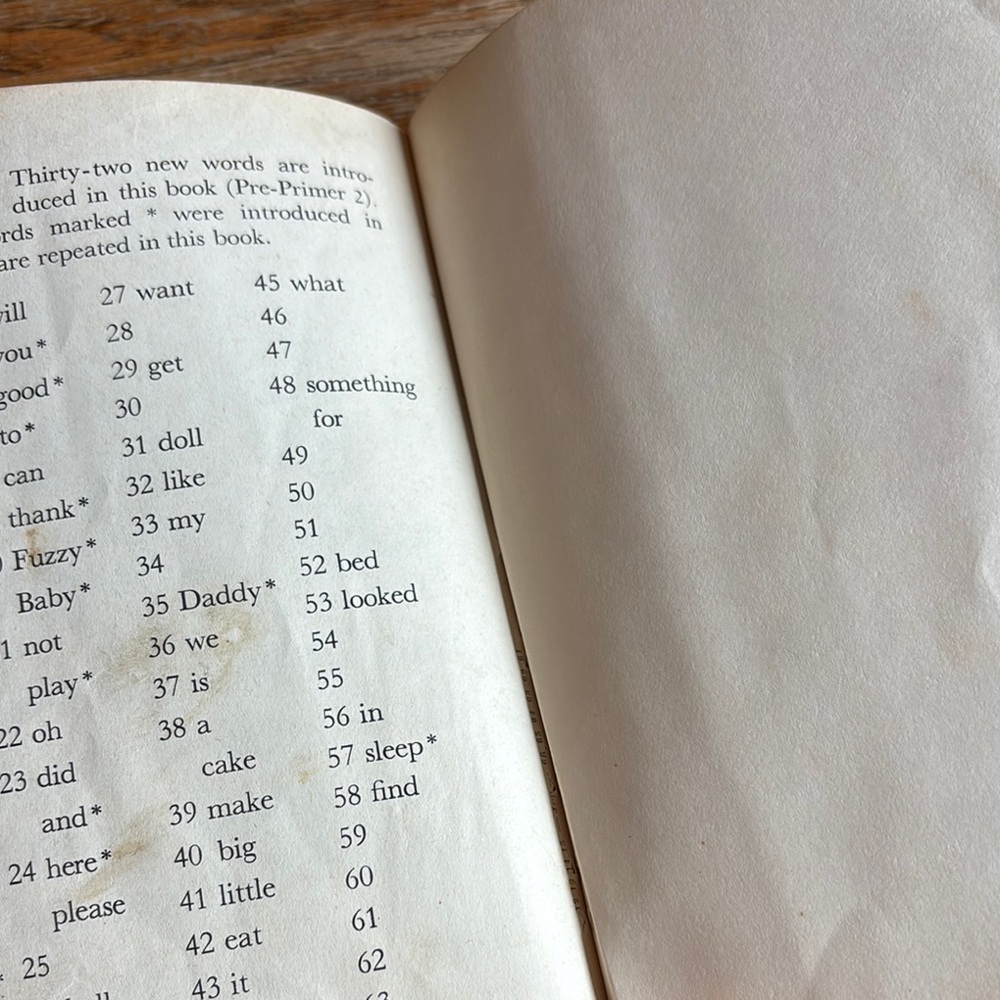 Thirty-two new words are intro-
duced in this book (Pre-Primer 2).
marked * were introduced in
are repeated in this book.
good*
to*
can
thank*
Fuzzy*
Baby*
not
play*
22 oh
23 did
and*
24 here*
please
25
27 want
28
29 get
30
31 doll
32 like
33 my
34
35 Daddy*
36 we
37 is
38 a
cake
39 make
40 big
41 little
42 eat
43 it
45 what
46
47
48 something
for
49
50
51
52 bed
53 looked
54
55
56 in
57 sleep*
58 find
59
60
61
62